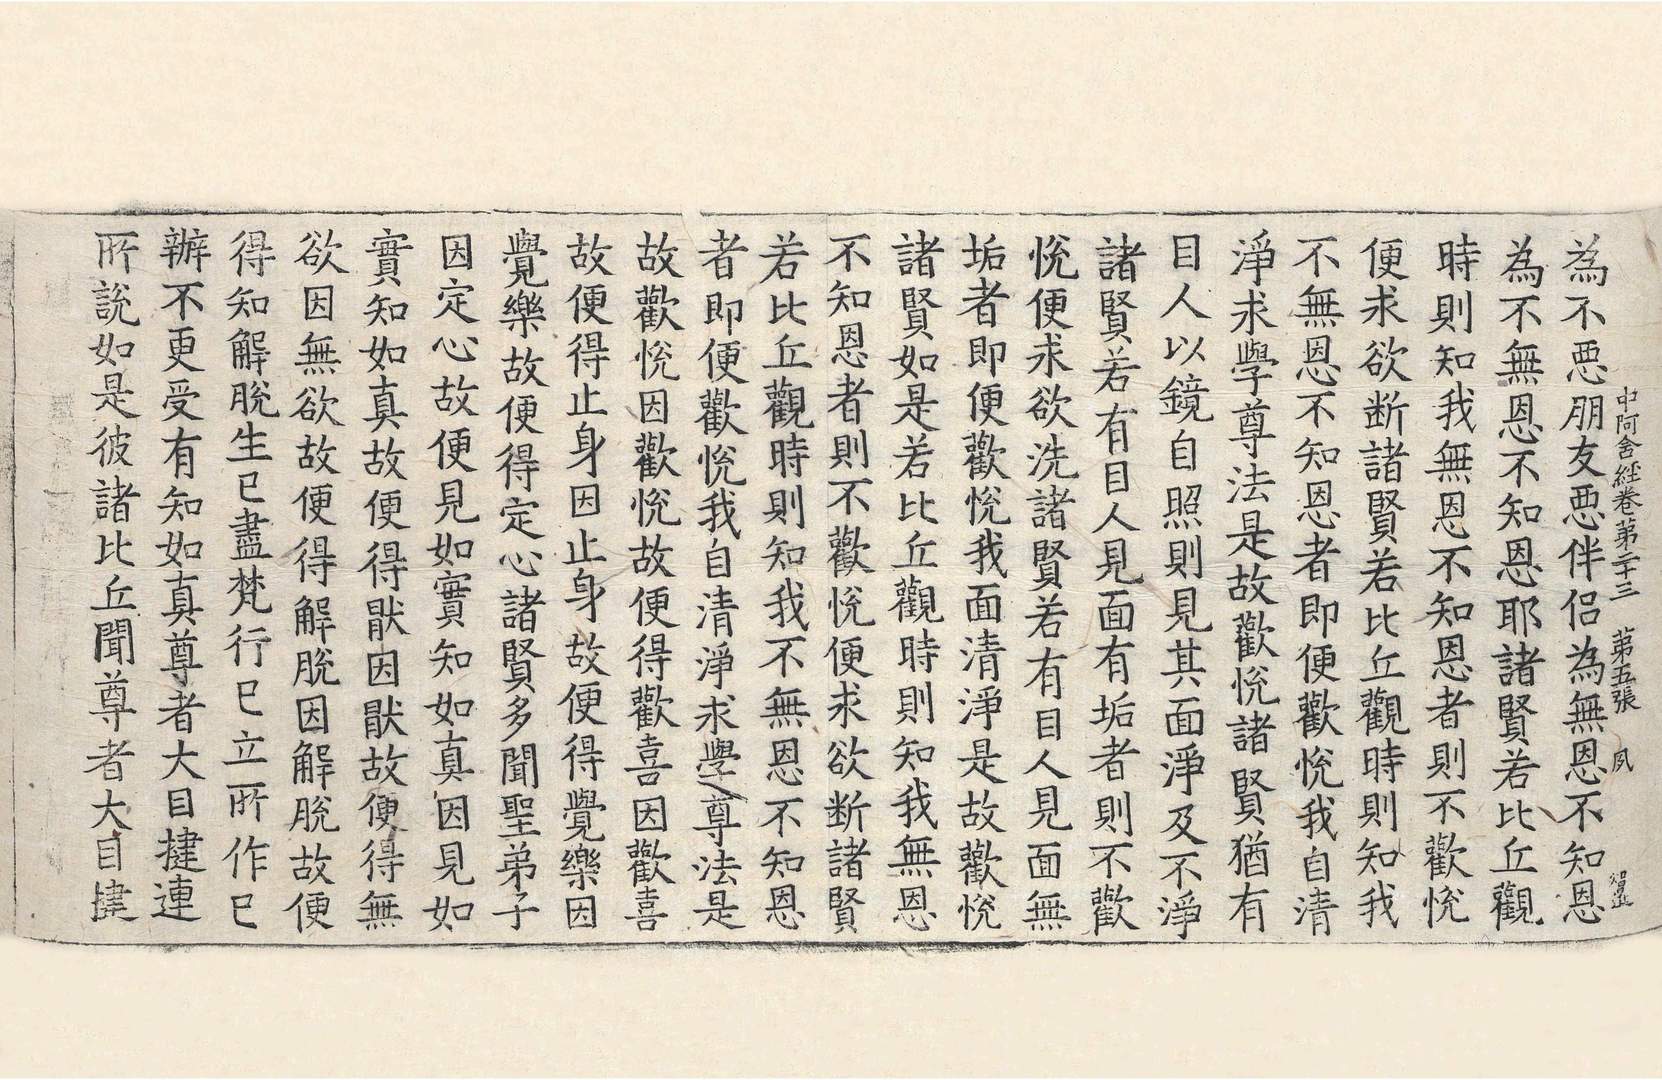 中阿含經卷第二十三 第五張 夙
為不惡朋友惡伴侶為無恩不知恩
為不無恩不知恩耶諸賢若比丘觀
時則知我無恩不知恩者則不歡悅
便求欲断諸賢若比丘觀時則知我
不無恩不知恩者即便歡悅我自清
淨求學尊法是故歡悅諸賢猶有
目人以鏡自照則見其面淨及不淨
諸賢若有目人見面有垢者則不歡
悅便求欲洗諸賢若有目人見面無
垢者即便歡悅我面清淨是故歡悅
諸賢如是若比丘觀時則知我無恩
不知恩者則不歡悅便求欲断諸賢
若比丘觀時則知我不無恩不知恩
者即便歡悅我自清淨求學尊法是
故歡悅因歡悅故便得歡喜因歡喜
故便得止身因止身故便得覺樂因
覺樂故便得定心諸賢多聞聖弟子
因定心故便見如實知如真因見如
實知如真故便得猒因猒故便得無
欲因無欲故便得解脫因解脫故便
得知解脫生已盡梵行已立所作已
辦不更受有知如真尊者大目揵連
所說如是彼諸比丘聞尊者大目揵